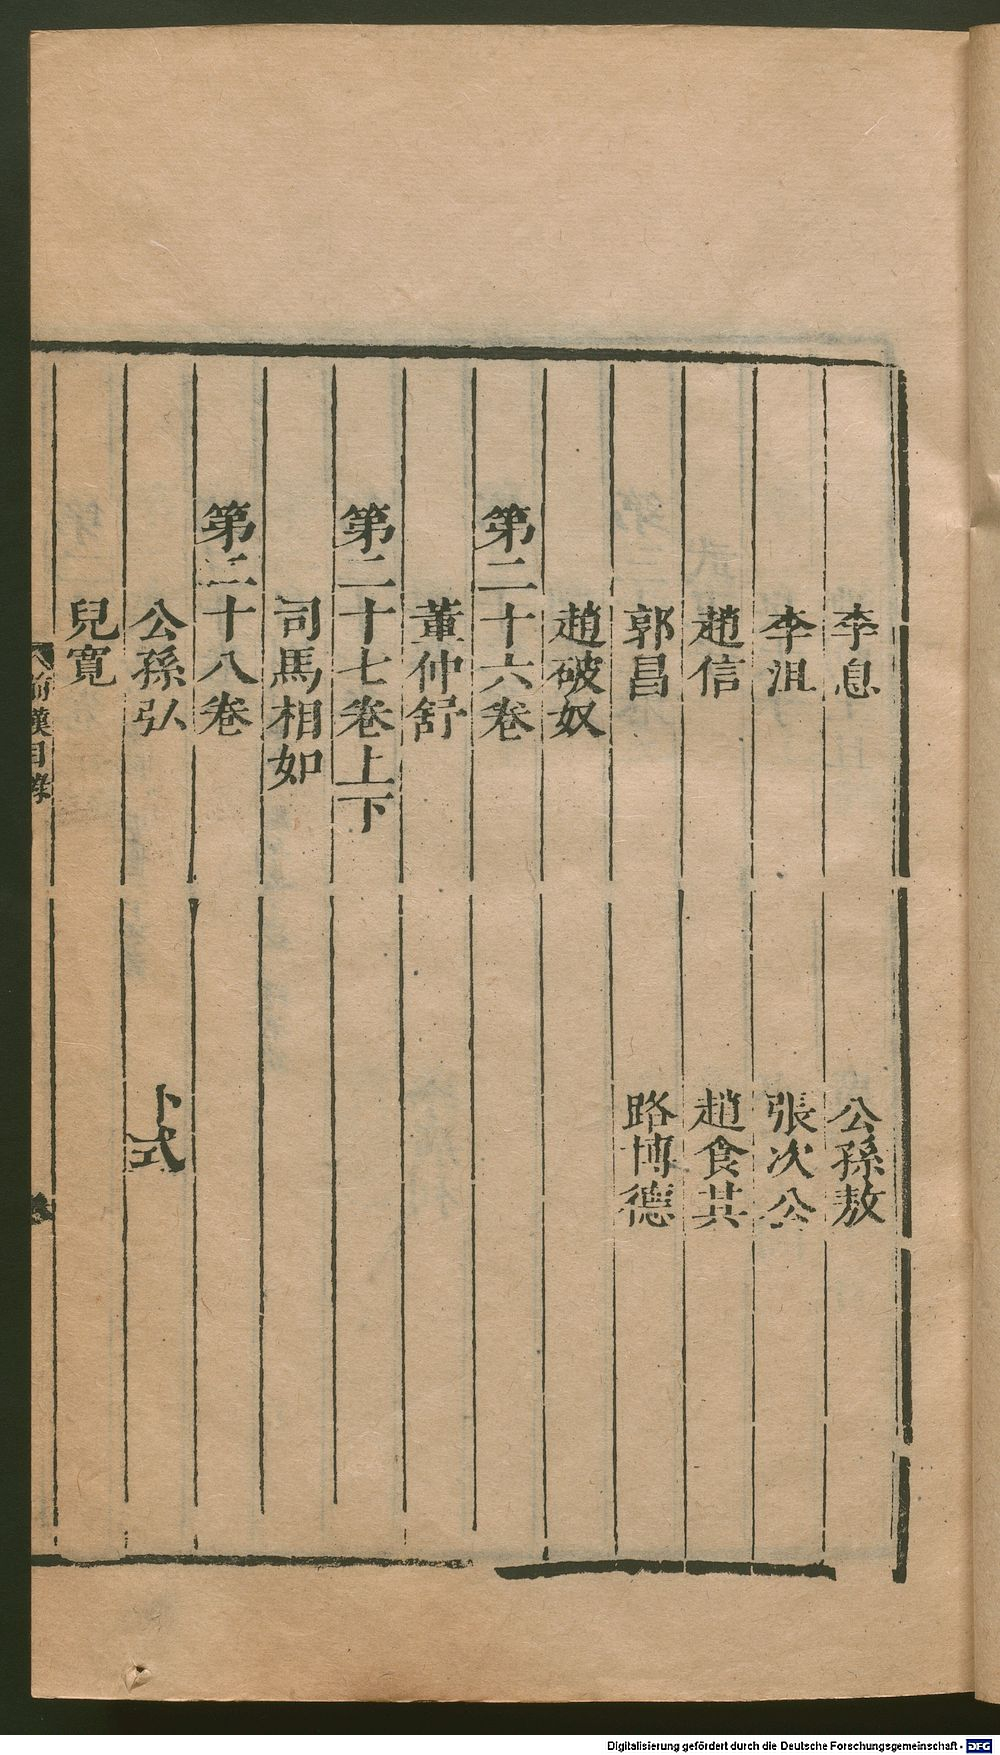 李息　公孫敖
李沮　張次公
趙信　趙食其
郭昌　路博德
趙破奴
第二十六卷
董仲舒
第二十七卷上下
司馬相如
第二十八卷
公孫弘　卜式
兒寬
前漢目錄
Digitalisierung gefördert durch die Deutsche Forschungsgemeinschaft - DFG